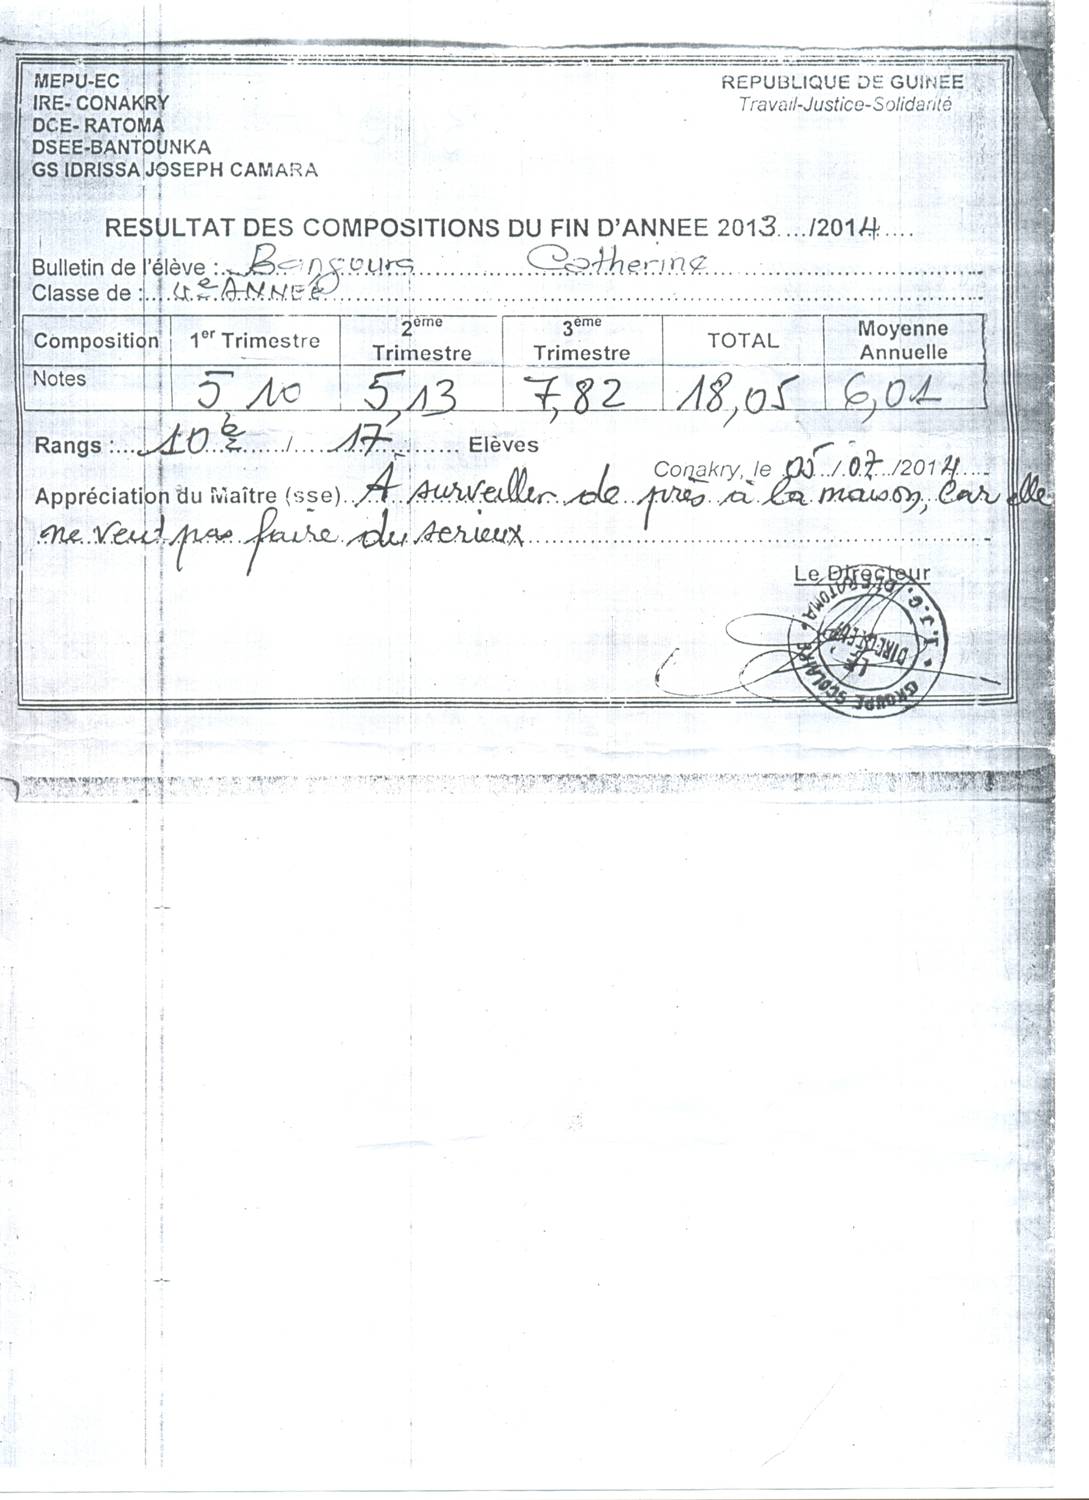 MEPU-EC
IRE- CONAKRY
DCE- RATOMA
DSEE-BANTOUNKA
GS IDRISSA JOSEPH CAMARA
REPUBLIQUE DE GUINEE
Travail-Justice-Solidarité
RESULTAT DES COMPOSITIONS DU FIN D'ANNEE 2013..../2014....
Bulletin de l'élève : Bangoura Catherine
Classe de : 4e ANNEE
Composition 1er Trimestre 2ème Trimestre 3ème Trimestre TOTAL Moyenne Annuelle
Notes 5,10 5,13 7,82 18,05 6,01
Rangs : 10e / 17 Elèves
Conakry, le 05 / 07 /2014
Appréciation du Maître (sse) À surveiller de près à la maison, car elle
ne veut pas faire du serieux
Le Directeur
GROUPE SCOLAIRE I.J.C. D/RATOMA
LE DIRECTEUR